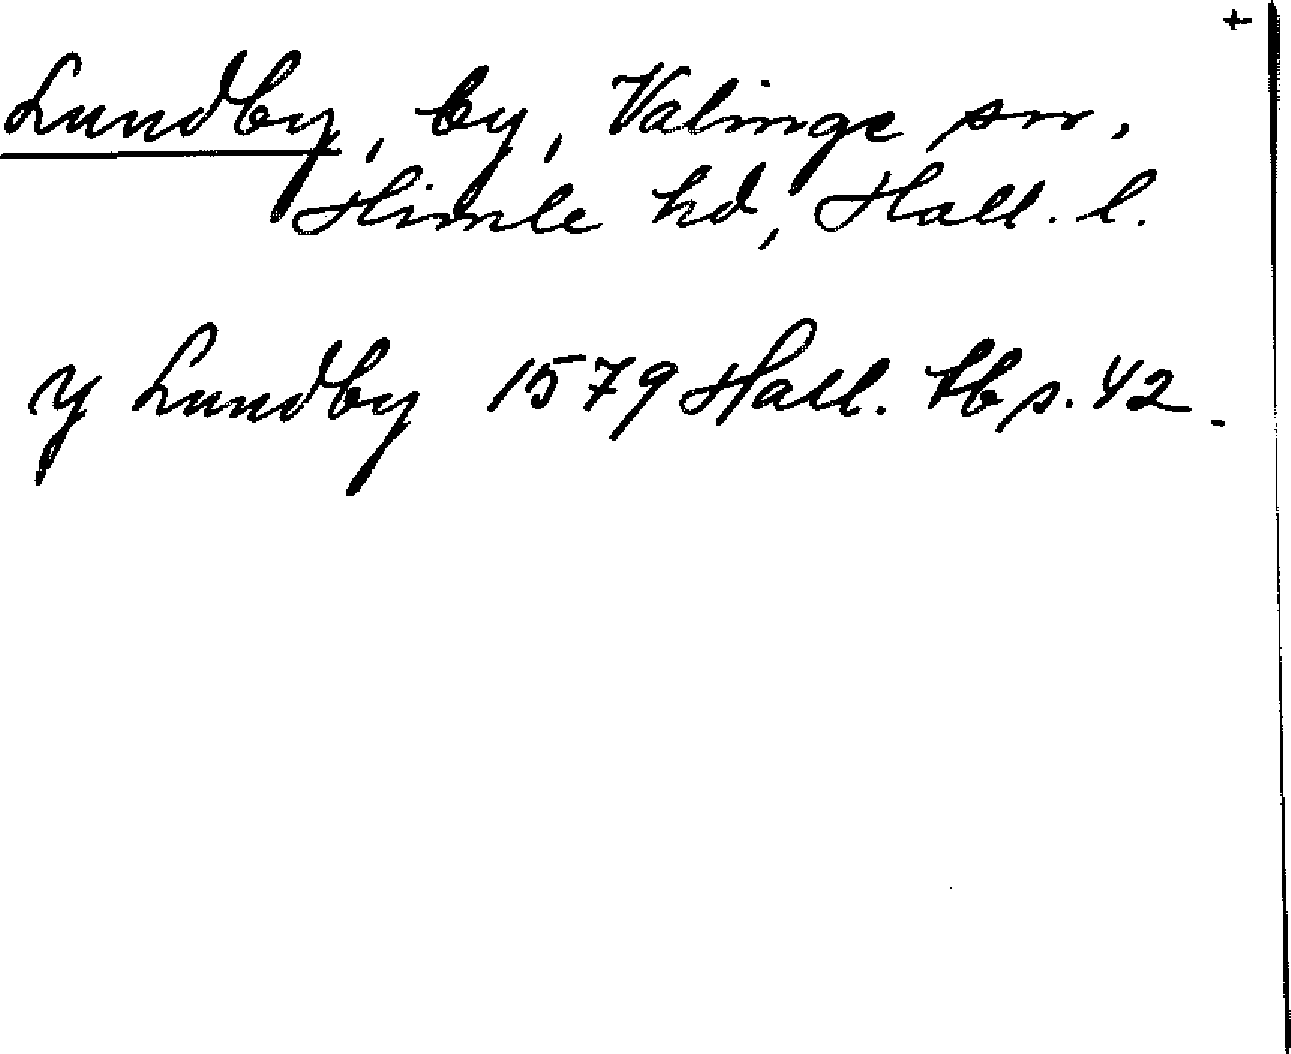 +
Lundby, by, Valinge sn,
Himle hd, Hall. l.
y Lundby 1579 Hall. tb s. 42.